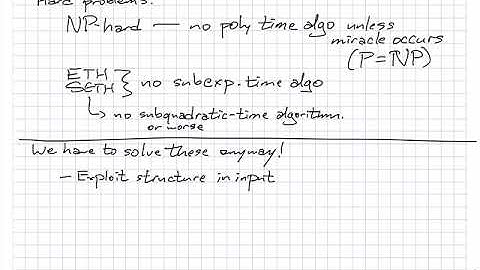 Hard problems:
NP-hard — no poly time algo unless
miracle occurs
(P=NP)
ETH
SETH } no subexp. time algo
↳ no subquadratic-time algorithm.
or worse
We have to solve these anyway!
- Exploit structure in input